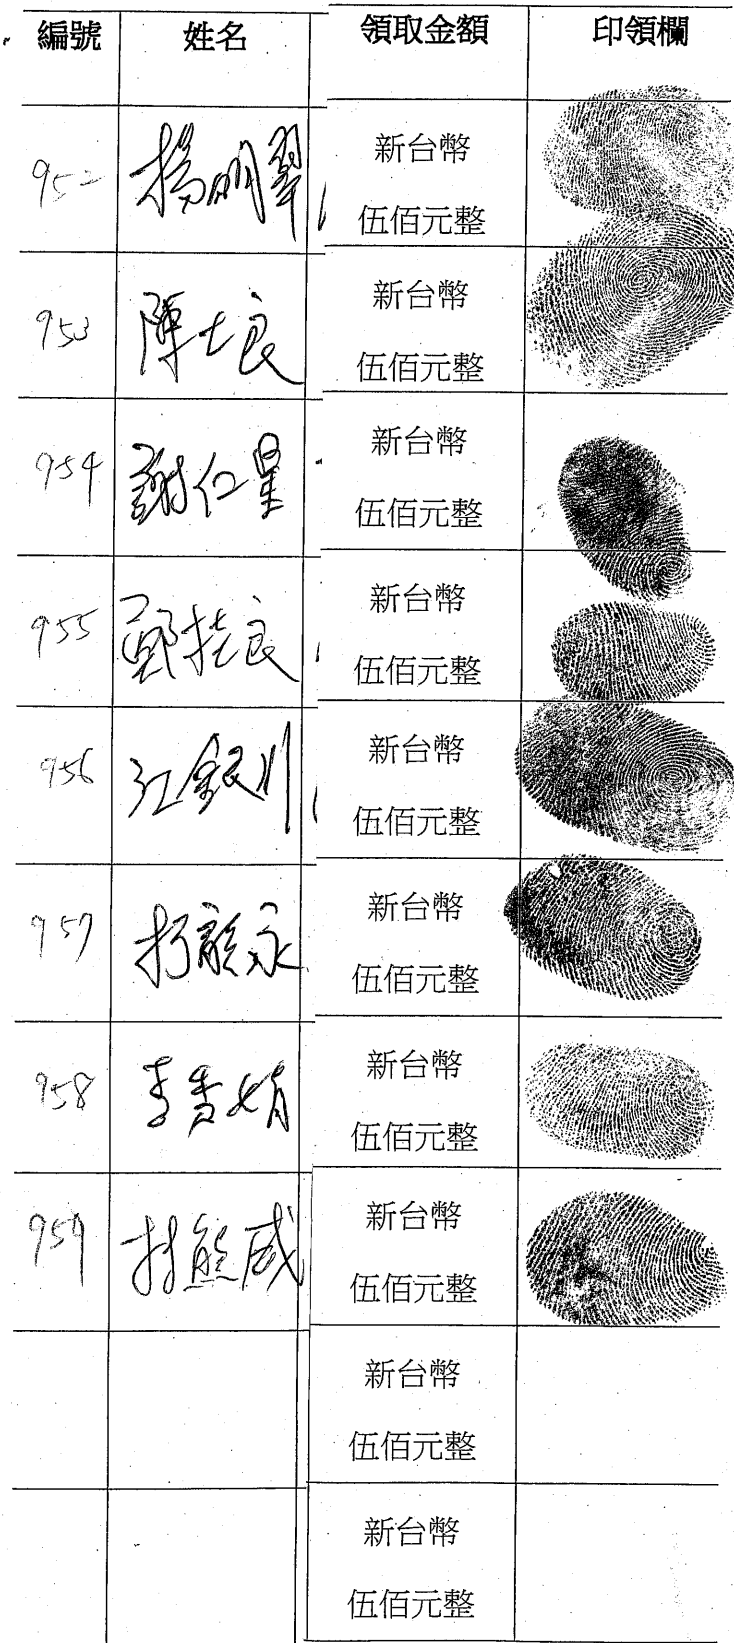 編號 姓名 領取金額 印領欄
952 楊明翠 新台幣
伍佰元整
953 陳士良 新台幣
伍佰元整
954 謝仁星 新台幣
伍佰元整
955 鄭桂良 新台幣
伍佰元整
956 江銀川 新台幣
伍佰元整
957 新台幣
伍佰元整
958 李香娟 新台幣
伍佰元整
959 林熊威 新台幣
伍佰元整
新台幣
伍佰元整
新台幣
伍佰元整